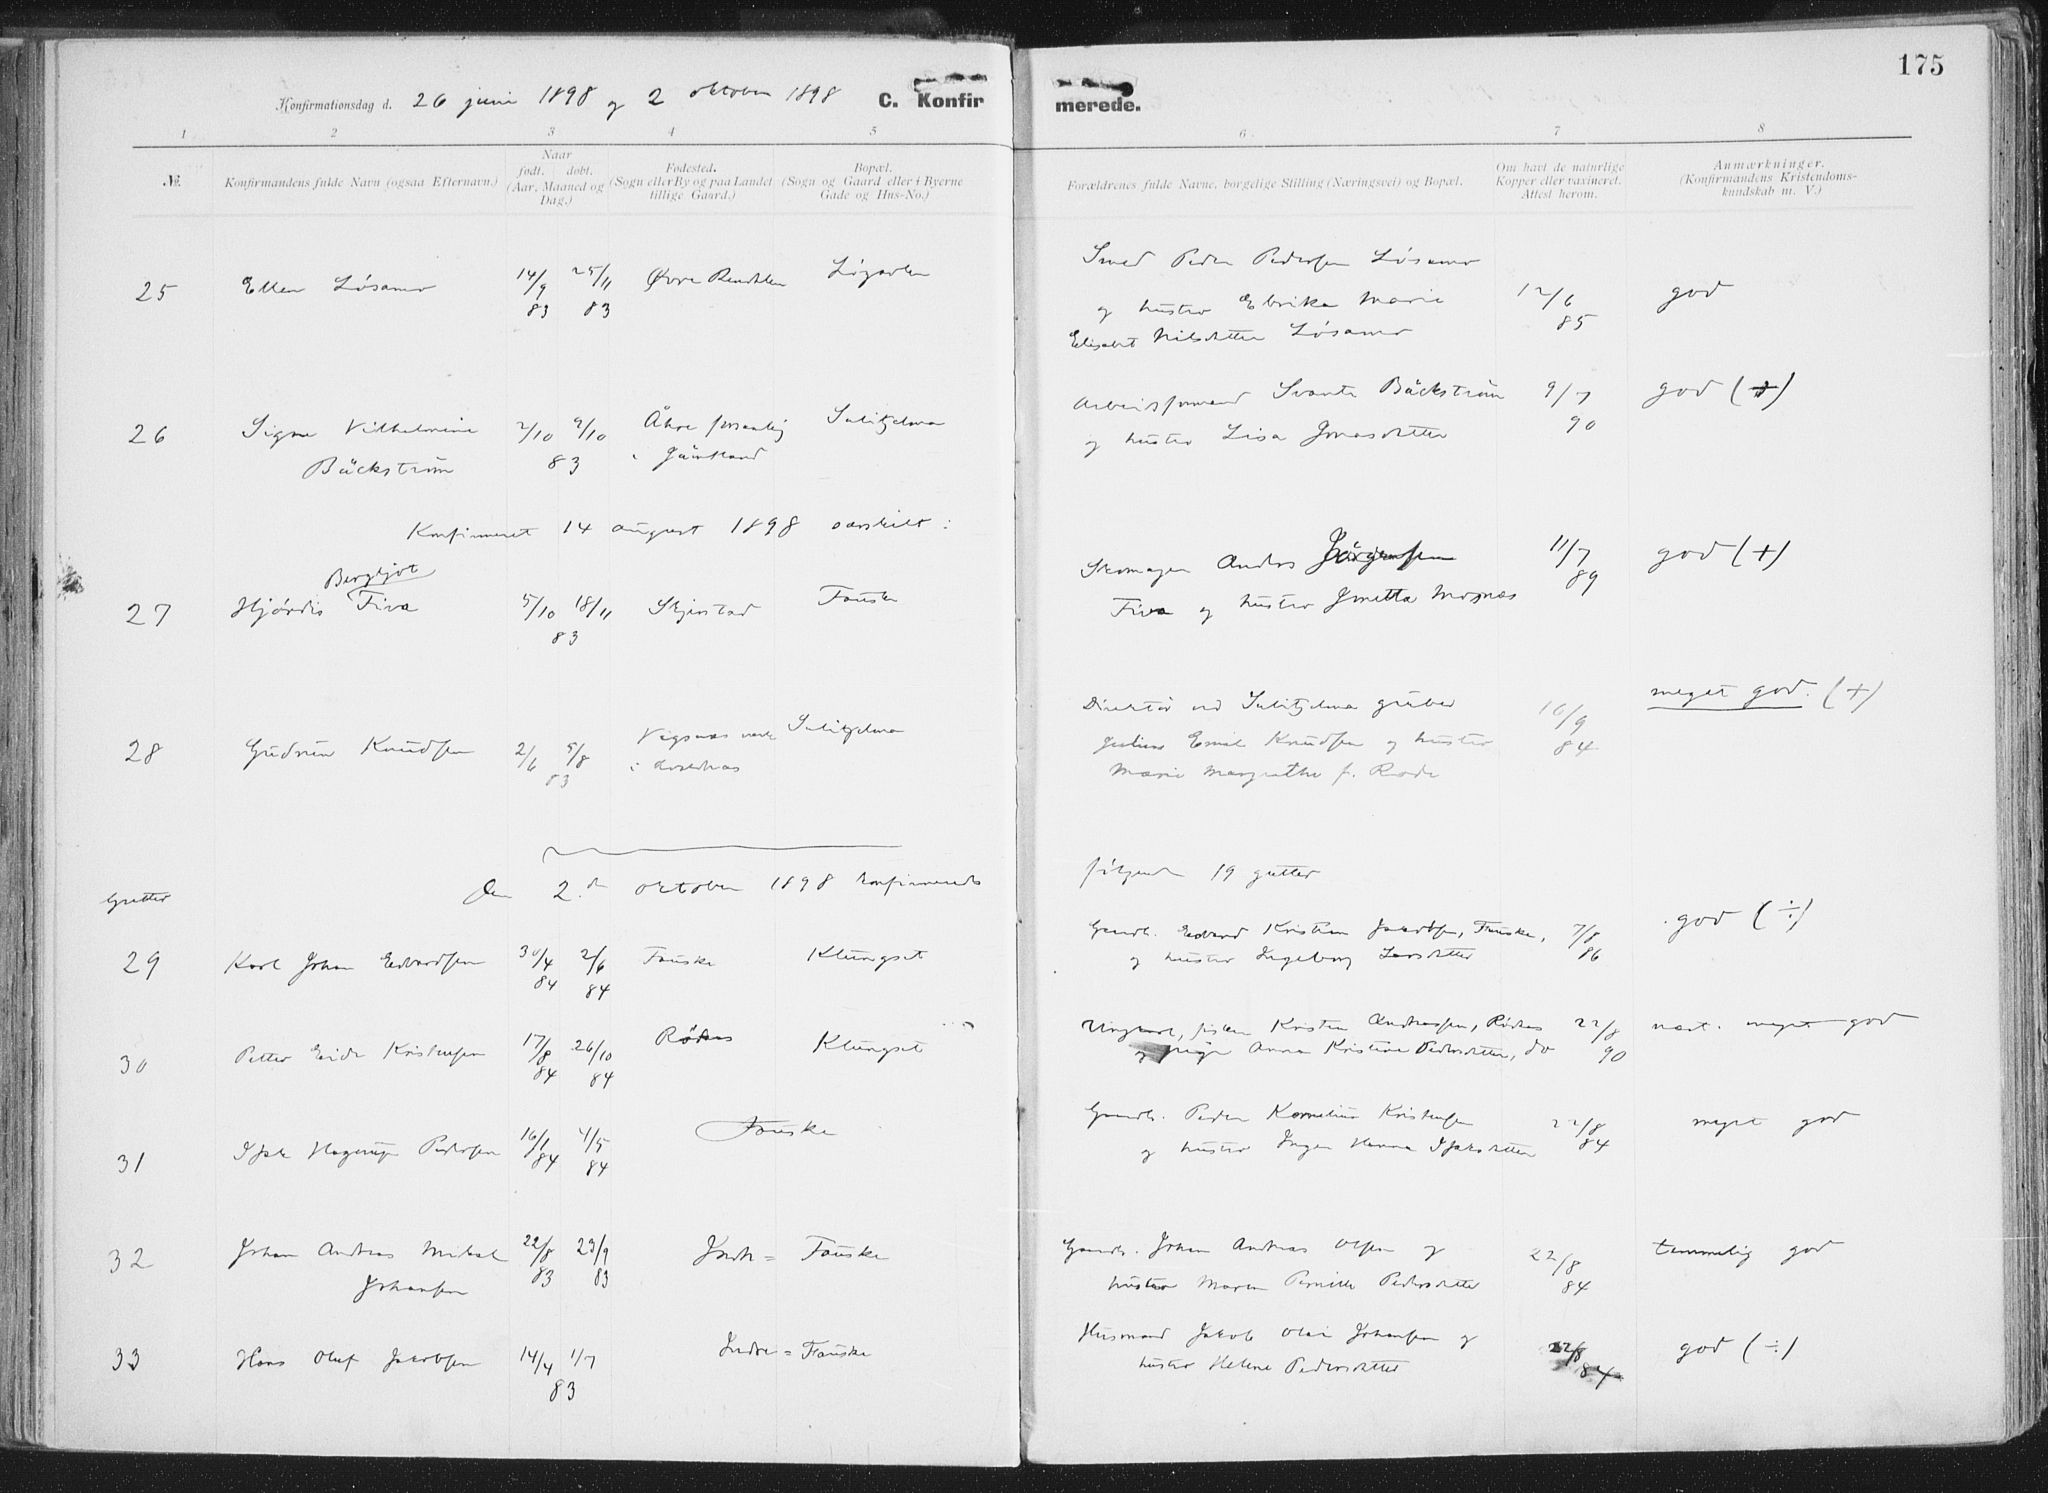 175
Konfirmationsdag d. 26 juni 1898 og 2 oktober 1898 C. Konfirmerede.
1 2 3 4 5 6 7 8
№ Konfirmandens fulde Navn (ogsaa Efternavn.) Naar født. døbt. (Aar, Maaned og Dag.) Fødested. (Sogn eller By og paa Landet tillige Gaard.) Bopæl. (Sogn og Gaard eller i Byerne Gade og Hus-No.) Forældrenes fulde Navne, borgelige Stilling (Næringsvei) og Bopæl. Om havt de naturlige Kopper eller vaxineret. Attest herom. Anmærkninger. (Konfirmandens Kristendomskundskab m. V.)
25 Ellen Løsamo 14/9 83 25/11 83 Øvre Smed Peder Pedersen Løsamo
og hustru Marie 12/6 85 god
Elisabet Nilsdatter Løsamo
26 Signe Vilhelmine 2/10 9/10 Åhre församling Sulitjelma Arbeidsformand Svante Bäckström 9/7 90 god (+)
Bäckström 83 i Jämtland og hustru Lisa Jonasdatter
Konfirmeret 14 august 1898 særskilt:
27 Hjördis Bergljot Fiva 5/10 18/11 83 Skjerstad Fauske Skomager Anders Jörgensen 11/7 89 god (+)
Fiva og hustru Jonetta Mosnæs
28 Gudrun Knudsen 2/6 5/8 83 Vigsnæs verk Sulitjelma Direktør ved Sulitjelma gruber 10/9 84 meget god. (+)
i Julius Emil Knudsen og hustru
Marie Margrethe f. Rode
Gutter Den 2.den oktober 1898 konfirmeredes følgende 19 gutter
29 Karl Johan Edvardsen 30/4 84 2/6 84 Fauske Klungset Gaardb. Edvard Kristian Jakobsen, Fauske, 7/8 86 god (÷)
og hustru Ingeborg Larsdatter
30 Petter Eide Kristensen 17/8 84 26/10 84 Röknes Klungset Ungkarl, fisker Kristen Andreassen, Röknes 22/8 90 næst. meget god
og pige Anna Kristine Pedersdatter, do
31 Isak Hagerup Pedersen 16/1 84 4/5 84 Fauske Gaardb. Peder Kornelius Kristensen 22/8 84 meget god
og hustru Inger Hanna Isaksdatter
32 Johan Andreas Mikal 22/8 83 23/9 83 Indre = Fauske Gaardb. Johan Andreas Olsen og 22/8 84 temmelig god
Johansen hustru Maren Pernille Pedersdatter
33 Hans Oluf Jakobsen 14/4 1/7 83 Indre = Fauske Husmand Jakob Olai Johansen og 22/8 84 god (÷)
hustru Helene Pedersdatter